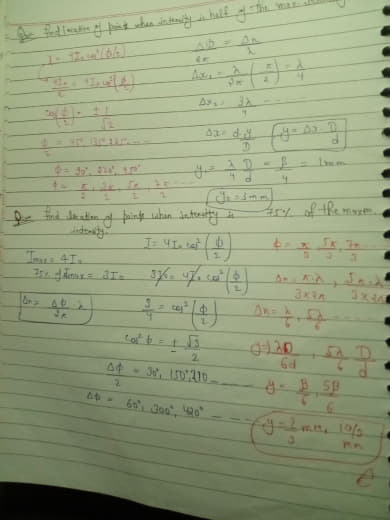 Que find location of points when intensity is half of the max.
I = 4I₀ cos²(ϕ/2)
4I₀/2 = 4I₀ cos²(ϕ/2)
cos(ϕ/2) = ± 1/√2
ϕ/2 = 45, 135, 225 ...
ϕ = 90°, 270°, 450°
ϕ = π/2, 3π/2, 5π/2, 7π/2 ...
Δϕ/2π = Δx/λ
Δx₁ = λ/2π (π/2) = λ/4
Δx₂ = 3λ/4 ...
Δx = dy/D
y = Δx D/d
y₁ = λ/4 D/d = β/4 = 1mm
y₂ = 3mm
Que find location of points when intensity is 75% of the maxm.
intensity.
Imax = 4I₀
75% of Imax = 3I₀
Δx = Δϕ/2π λ
I = 4I₀ cos²(ϕ/2)
3I₀ = 4I₀ cos²(ϕ/2)
3/4 = cos²(ϕ/2)
cos²ϕ = ± √3/2
Δϕ/2 = 30°, 150°, 210 ...
Δϕ = 60°, 300°, 420° ...
ϕ = π/3, 5π/3, 7π/3 ...
Δx = π·λ/3×2π, 5π·λ/3×2π
Δx = λ/6, 5λ/6 ...
y = λD/6d, 5λ/6 D/d
y = β/6, 5β/6
y = 2/3 mm, 10/3 mm